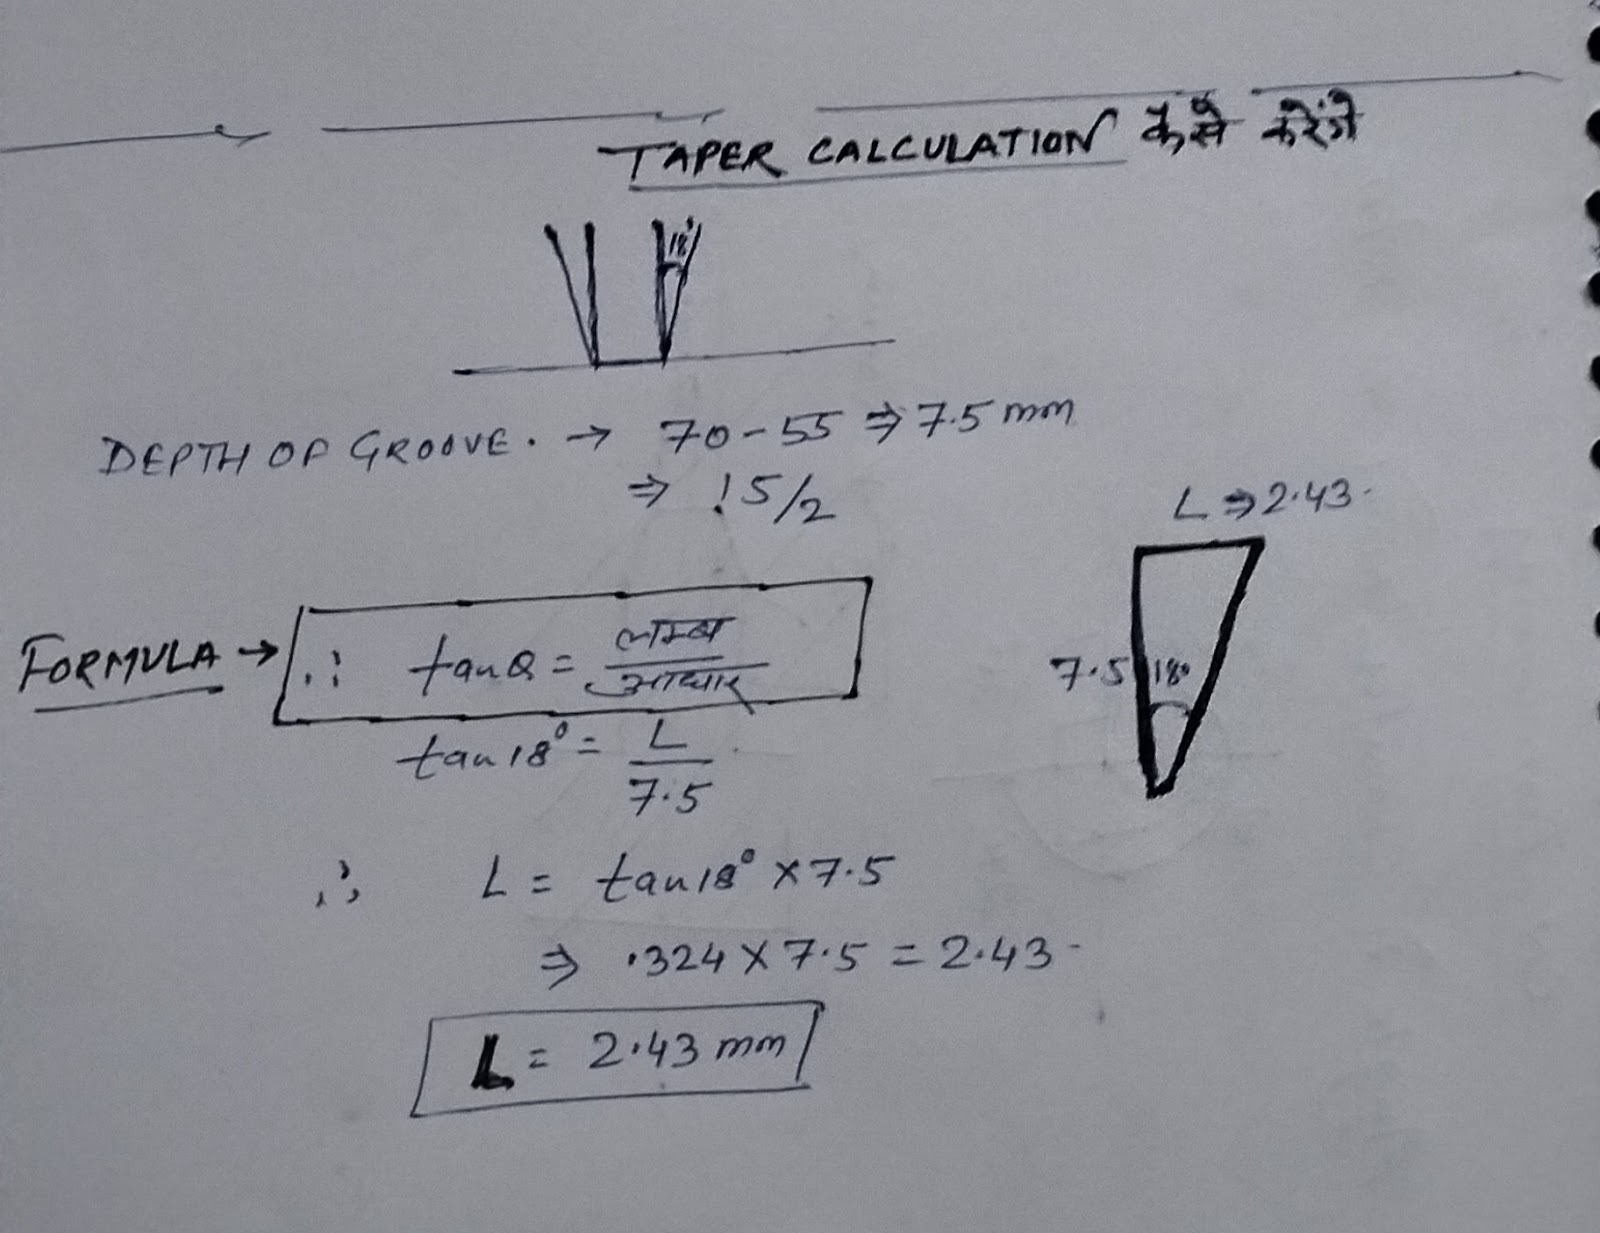 TAPER CALCULATION कैसे करेंगे
18°
DEPTH OF GROOVE. → 70-55 ⇒ 7.5 mm
⇒ 15/2
L ⇒ 2.43.
FORMULA → ∴ tanθ = लम्ब / आधार
7.5 18°
tan18° = L / 7.5
∴ L = tan18° × 7.5
⇒ .324 × 7.5 = 2.43
L = 2.43 mm